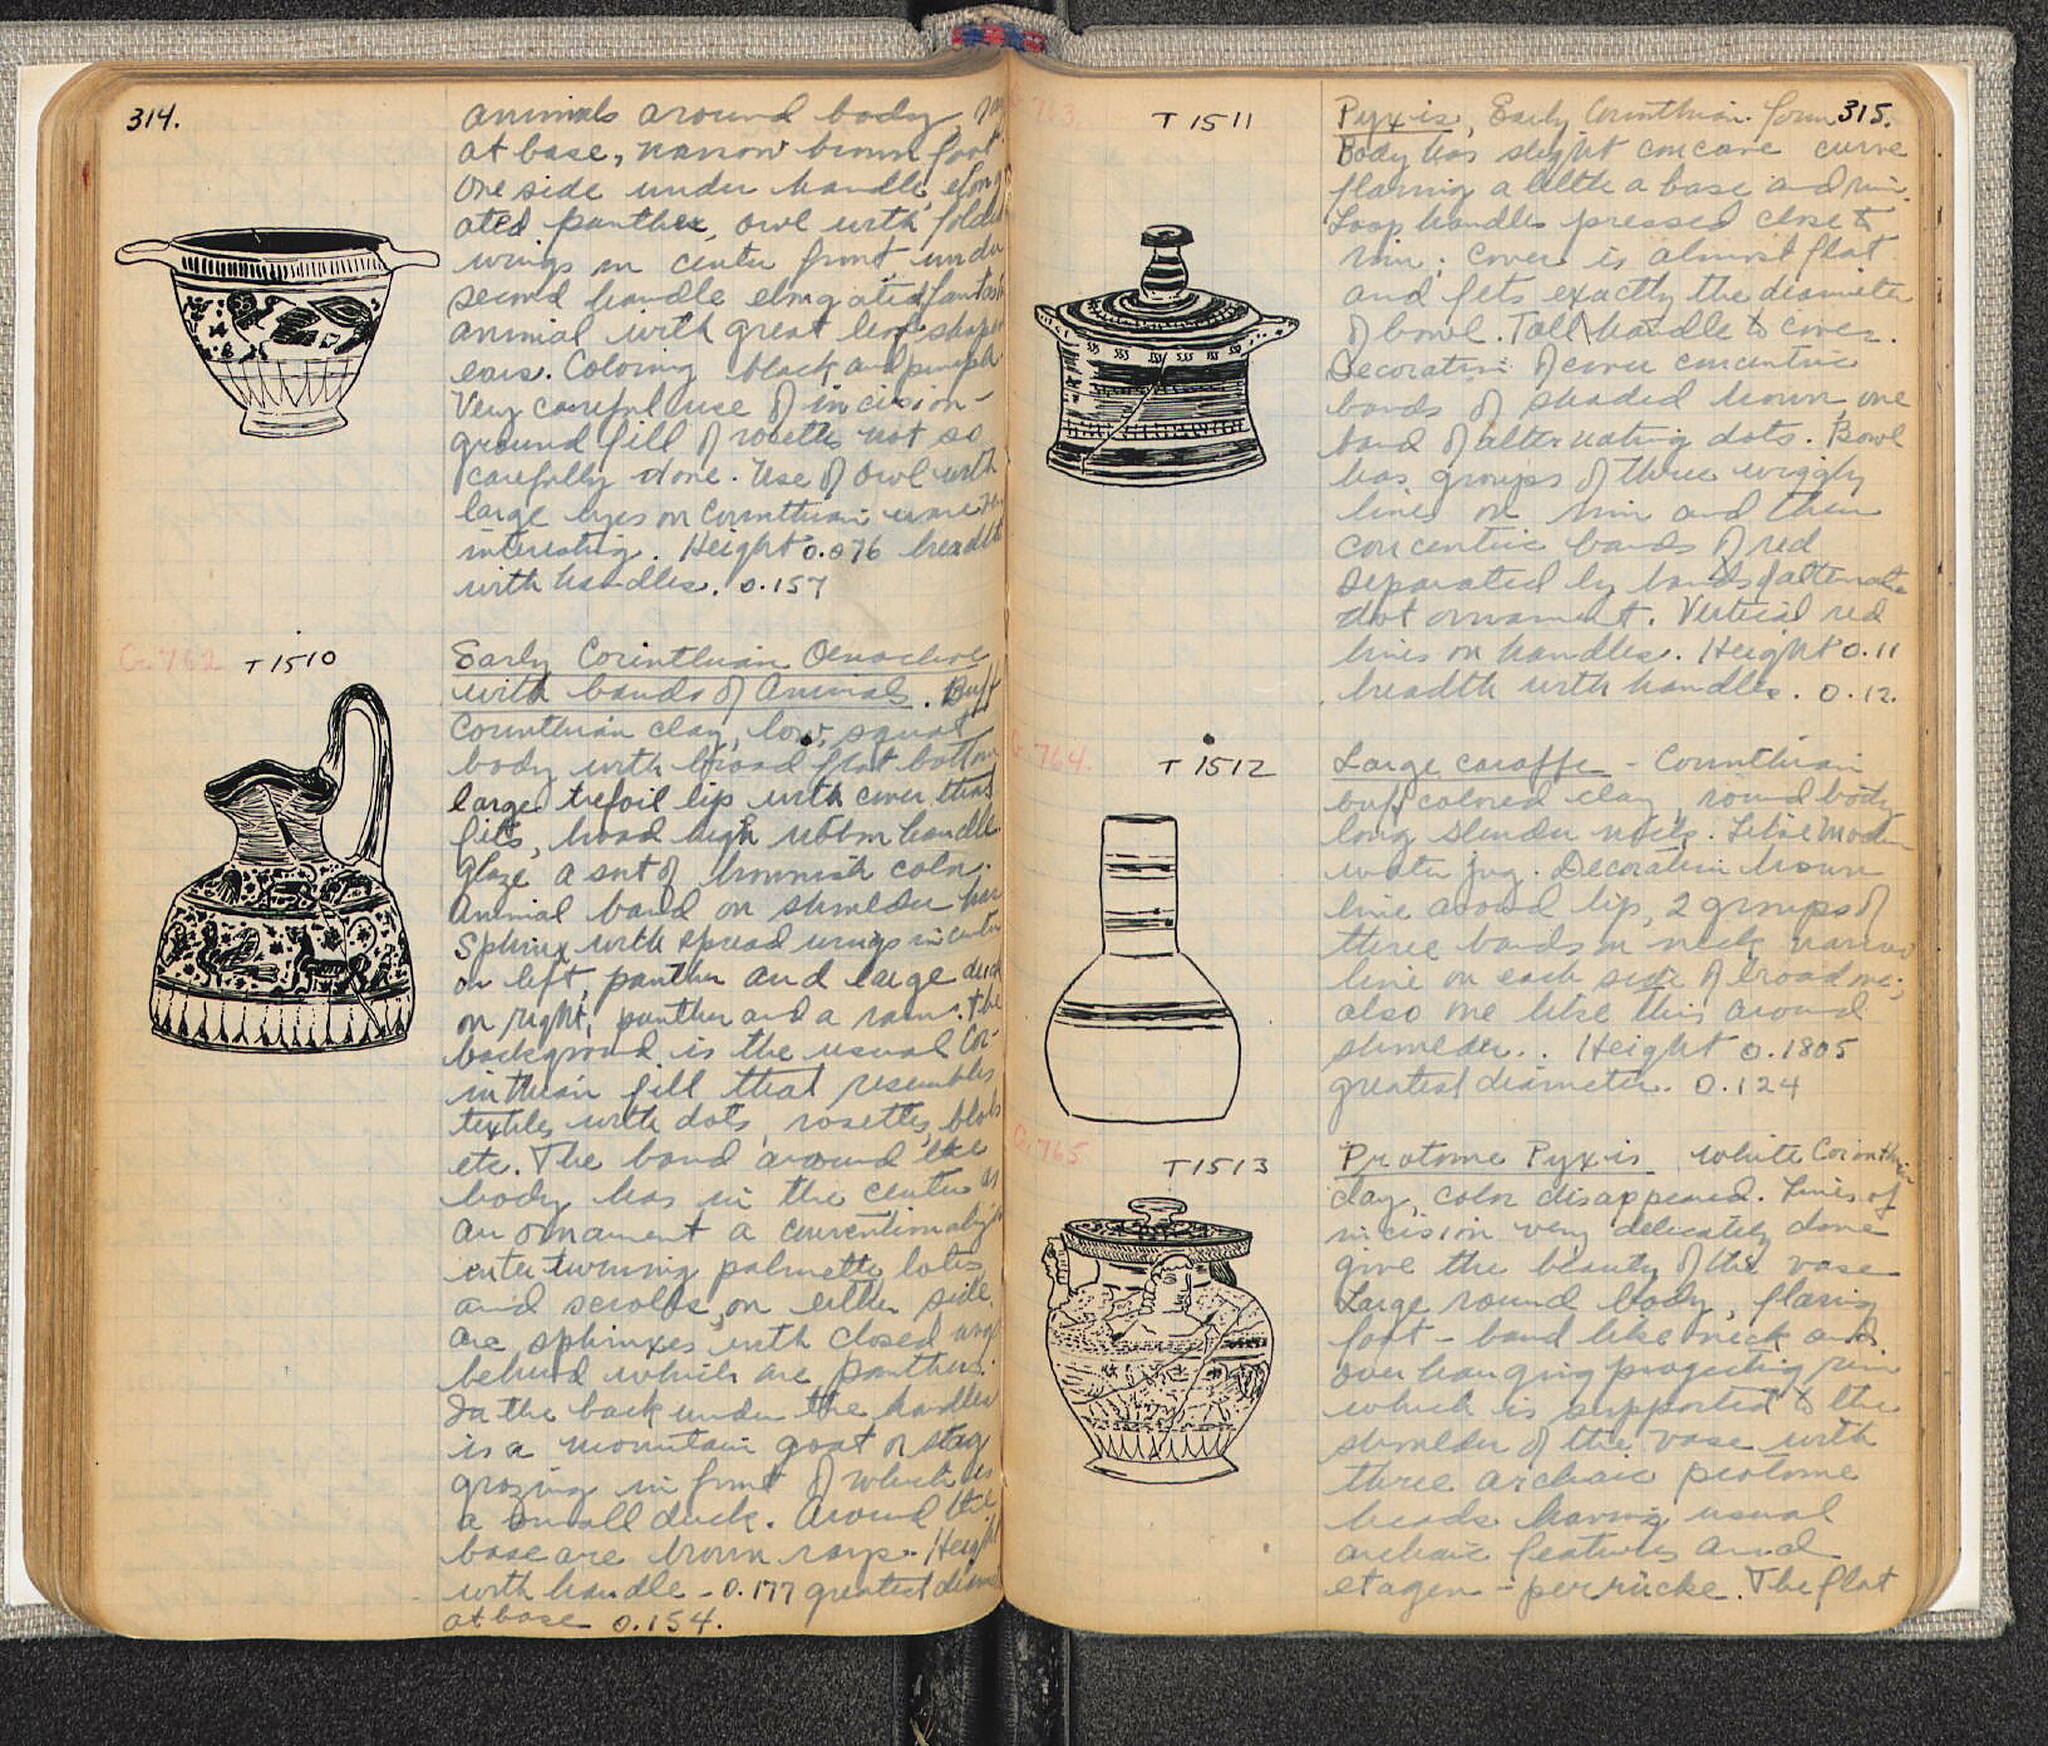 314.
animals around body,
at base, narrow brown foot.
One side under handle, elong
ated panther, owl with folded
wings in center front, under
second handle elongated fantastic
animal with great leaf shaped
ears. Coloring black and purple
Very careful use of incision -
ground fill of rosettes not so
carefully done. Use of owl with
large eyes on Corinthian ware
interesting. Height 0.076 breadth
with handles. 0.157
C. 762 T 1510
Early Corinthian Oenochoe
with bands of Animals. Buff
Corinthian clay, low, squat
body with broad flat bottom
large trefoil lip with cover that
fits, broad high ribbon handle.
Glaze a sort of brownish color.
Animal band on shoulder has
Sphinx with spread wings in center
on left, panther and large duck
on right, panther and a ram. The
background is the usual Cor-
inthian fill that resembles
textiles with dots, rosettes, blobs
etc. The band around the
body has in the center as
an ornament a conventionalized
inter twining palmette lotus
and scrolls, on either side
are sphinxes with closed wings
behind which are panthers.
In the back under the handles
is a mountain goat or stag
grazing in front of which is
a small duck. Around the
base are brown rays. Height
with handle - 0.177 greatest diameter
at base 0.154.
763. T 1511
315.
Pyxis, Early Corinthian form
Body has slight concave curve
flaring a little a base and rim.
Loop handles pressed close to
rim; cover is almost flat
and fits exactly the diameter
of bowl. Tall handle to cover.
Decoration of cover concentric
bands of shaded brown, one
band of alternating dots. Bowl
has groups of three wiggly
lines on rim and then
concentric bands of red
separated by bands of alternate
dot ornament. Vertical red
lines on handles. Height 0.11
breadth with handles. 0.12.
C. 764. T 1512
Large caraffe - Corinthian
buff colored clay, round body
long slender neck. Like Modern
water jug. Decoration brown
line around lip, 2 groups of
three bands on neck narrow
line on each side of broad one;
also one like this around
shoulder.. Height 0.1805
greatest diameter. 0.124
C. 765 T 1513
Protome Pyxis white Corinthian
clay, color disappeared. Lines of
incision very delicately done
give the beauty of the vase
Large round body, flaring
foot - band like neck and
over hanging projecting rim
which is supported to the
shoulder of the vase with
three archaic protome
heads having usual
archaic features and
etagen - perrücke. The flat